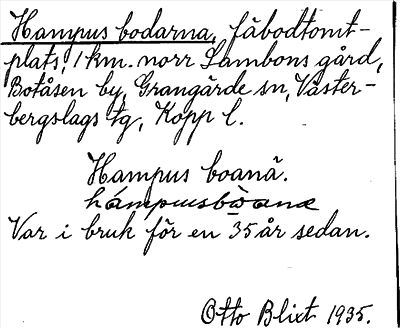 Hampus bodarna, fäbodtomt-
plats, 1 km. norr Lambons gård,
Botåsen by, Grangärde sn, Väster-
bergslags tg, Kopp l.
Hampus boanä.
hámpusbòanæ
Var i bruk för en 35 år sedan.
Otto Blixt 1935.